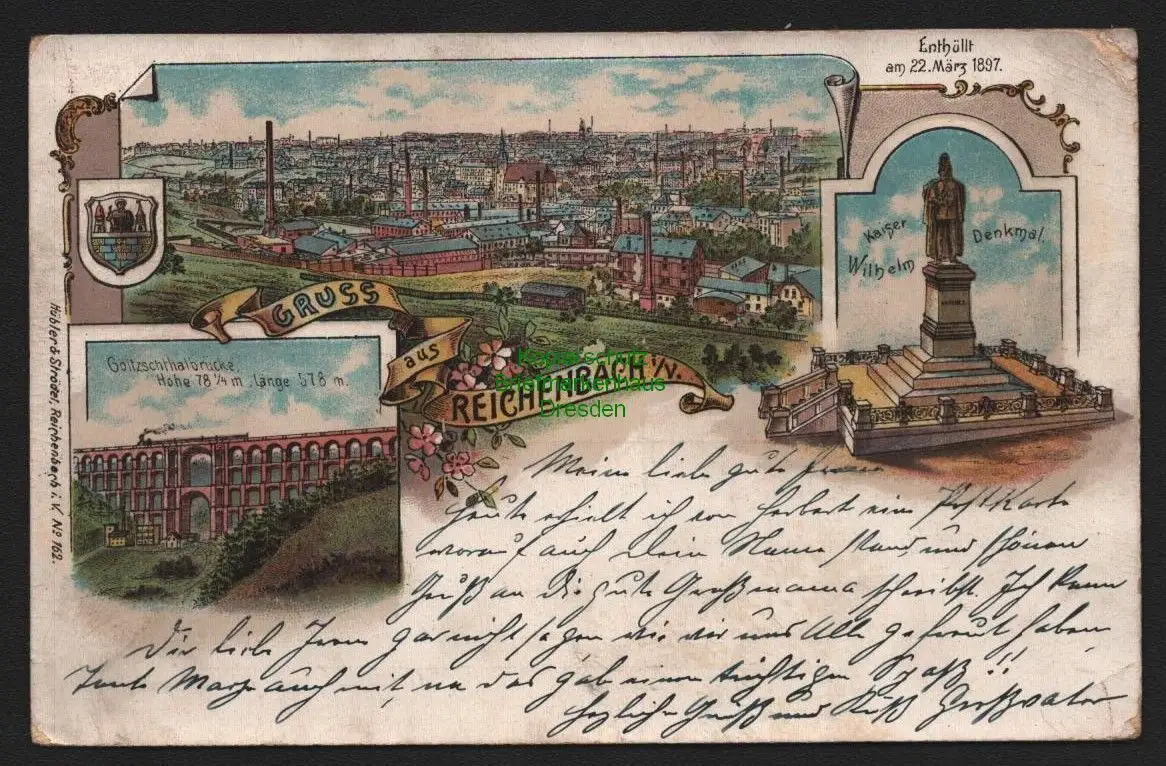 Enthüllt
am 22. März 1897.
Kaiser
Wilhelm
Denkmal.
GRUSS
aus
REICHENBACH i/V.
Göltzschthalbrücke.
Höhe 78 1/4 m, Länge 578 m.
Hübler & Ströbel, Reichenbach i. V. No 162.
Briefmarkenhaus
Dresden
Meine liebe gute
Heute erhielt ich von Herbert eine Postkarte
worauf auch Dein Name stand und schönen
Gruß an die gute Großmama schreibst. Ich kann
Dir liebe gar nicht sagen wie wir uns Alle gefreut haben
Tante auch mit, na das gab einen tüchtigen Spaß!!
herzliche Grüß und Küß Großvater